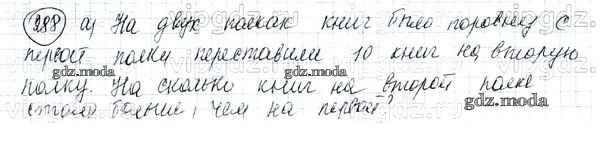 288 а) На двух полках книг было поровну. С
первой полки переставили 10 книг на вторую
полку. На сколько книг на второй полке
стало больше, чем на первой?
gdz.moda
gdz.moda
gdz.moda
gdz.moda